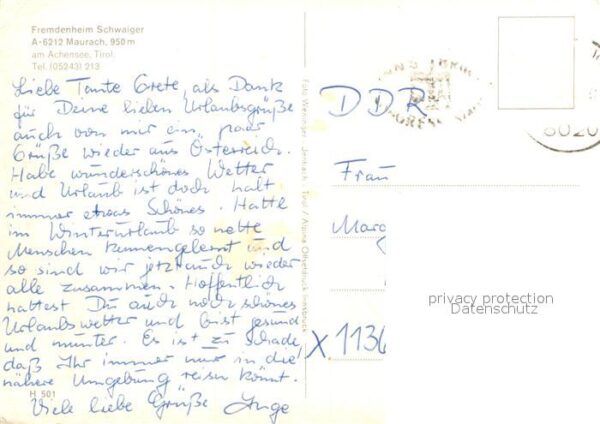 Fremdenheim Schwaiger
A-6212 Maurach, 950 m
am Achensee, Tirol
Tel. (05243) 213
Liebe Tante Grete, als Dank
für Deine lieben Urlaubsgrüße
auch von mir ein paar
Grüße wieder aus Österreich.
Habe wunderschönes Wetter
und Urlaub ist doch halt
immer etwas Schönes. Hatte
im Winterurlaub so nette
Menschen kennengelernt und
so sind wir jetzt auch wieder
alle zusammen. Hoffentlich
hattest Du auch noch schönes
Urlaubswetter und bist gesund
und munter. Es ist zu schade,
daß Ihr immer nur in die
nähere Umgebung reisen könnt.
Viele liebe Grüße Inge
H 501
Tirol / Alpina Offsetdruck, Innsbruck
DDR
Frau
Marg
X 1136
8020
privacy protection
Datenschutz